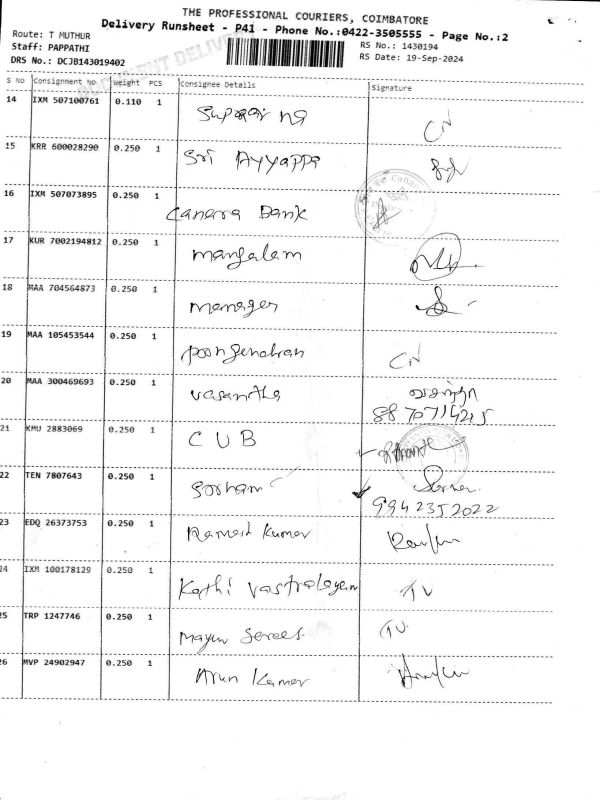 THE PROFESSIONAL COURIERS, COIMBATORE
Delivery Runsheet - P41 - Phone No.:0422-3505555 - Page No.:2
Route: T MUTHUR
RS No.: 1430194
Staff: PAPPATHI
RS Date: 19-Sep-2024
DRS No.: DCJB143019402
S No Consignment No Weight PCS Consignee Details Signature
14 IXM 507100761 0.110 1
15 KRR 600028290 0.250 1 Sri Ayyappa
16 IXM 507073895 0.250 1 Canara Bank
17 KUR 7002194812 0.250 1 mangalam
18 MAA 704564873 0.250 1 manager
19 MAA 105453544 0.250 1
20 MAA 300469693 0.250 1 vasantha வசந்தா
21 KMU 2883069 0.250 1 CUB
22 TEN 7807643 0.250 1
9942352022
23 EDQ 26373753 0.250 1 Ramesh Kumar
24 IXM 100178129 0.250 1 Kathi Vastralayam
25 TRP 1247746 0.250 1
26 MVP 24902947 0.250 1 Arun Kumar